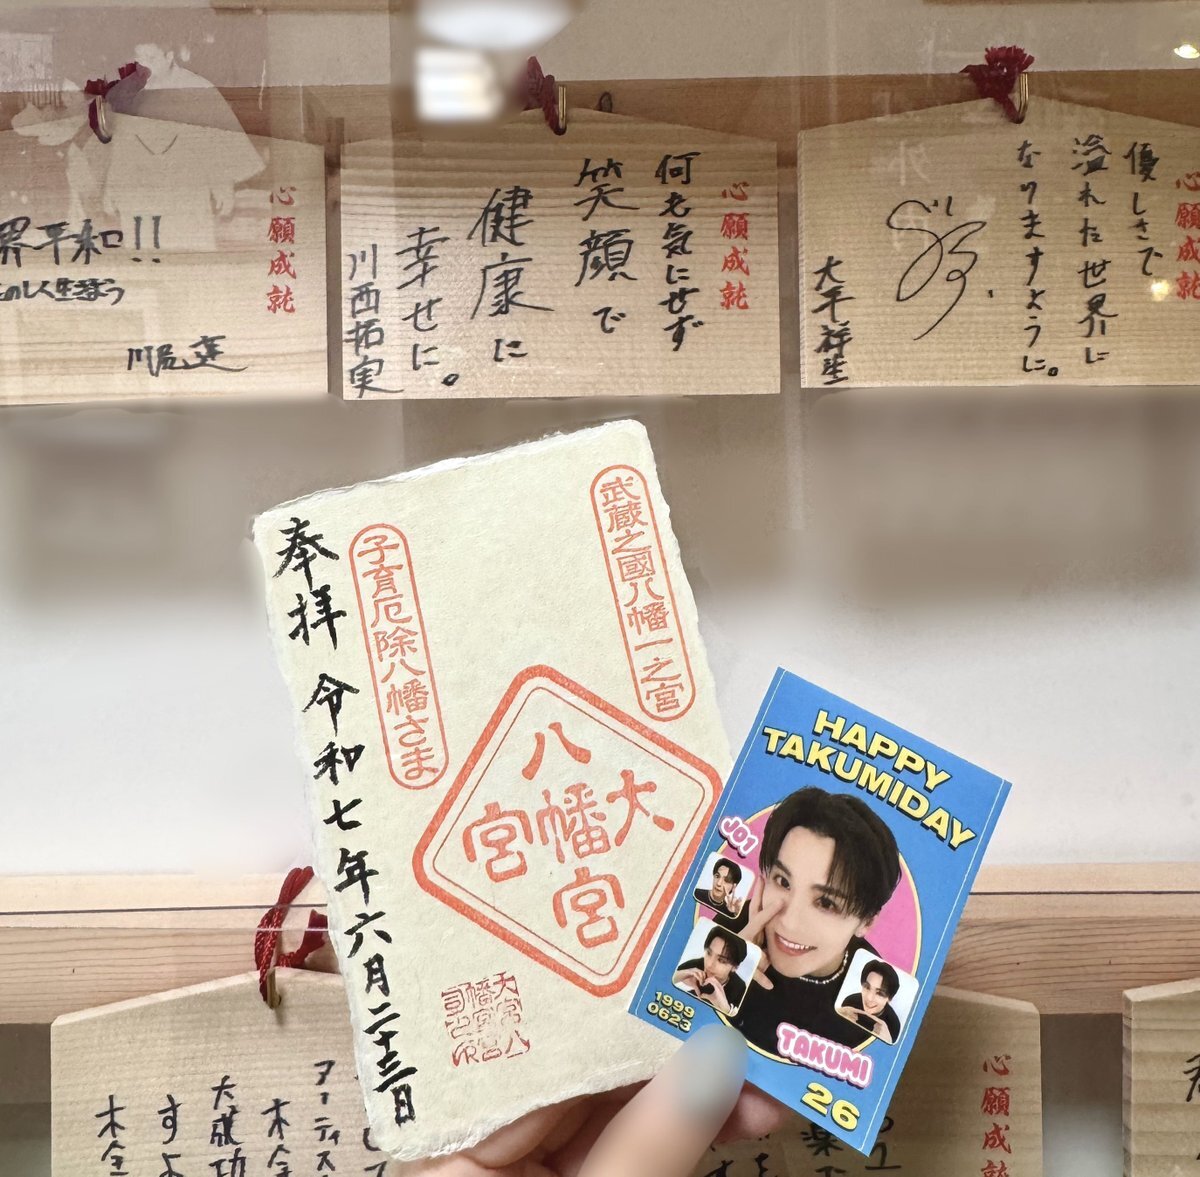 心願成就
界平和!!
川尻蓮
心願成就
何も気にせず
笑顔で
健康に
幸せに。
川西拓実
心願成就
優しさで
溢れた世界に
なりますように。
大平祥生
武蔵之國八幡一之宮
大宮
八幡宮
子育厄除八幡さま
奉拝 令和七年六月二十三日
HAPPY
TAKUMIDAY
JO1
1999
0623
TAKUMI
26
心願成就
アーティス
大成功
すよ